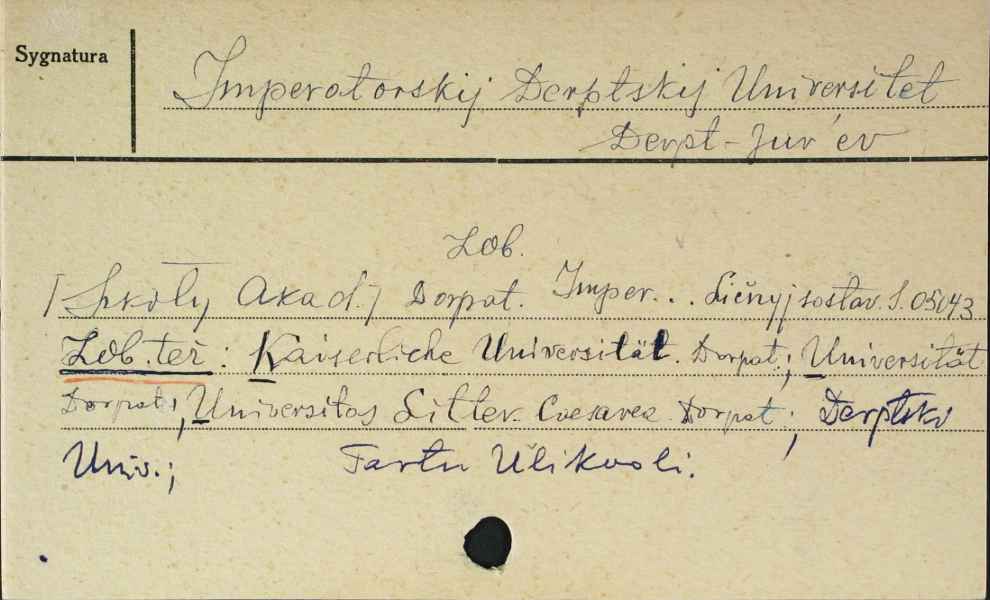 Sygnatura
Imperatorskij Derptskij Universitet
Derpt-Jur'ev
Zob.
[Szkoły Akad.] Dorpat. Imper... Ličnyj sostav. S. 05043
Zob. też: Kaiserliche Universität. Dorpat.; Universität
Dorpat; Universitas Litter. Caesarea. Dorpat; Derptskij
Univ.; Tartu Ülikooli.